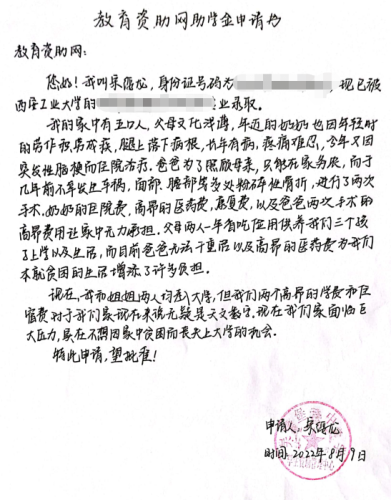 教育资助网助学金申请书
教育资助网：
您好！我叫吴德龙，身份证号码为 现已被
西安工业大学的 业录取。
我的家中有五口人，父母文化浅薄，年近的奶奶也因年轻时
的劳作积劳成疾，腿上落下病根，长年有病，疼痛难忍，今年又因
突发性脑梗而住院治疗。爸爸为了照顾母亲，只能在家务农，而于
几年前不幸发生车祸，面部、腰部等多处粉碎性骨折，进行了两次
手术，奶奶的住院费，高昂的医药费，康复费，以及爸爸两次手术的
高昂费用让家中无力承担。父母两人一年省吃俭用供养我们三个孩
子上学以及生活，而目前爸爸无法干重活以及高昂的医药费为我们
本就贫困的生活增添了许多负担。
现在，我和姐姐两人均走入大学，但我们两个高昂的学费和住
宿费对于我们家现在来说无疑是天文数字，现在我们家面临巨
大压力，实在不想因家中贫困而丧失上大学的机会。
特此申请，望批准！
申请人：吴德龙
时间：2022年8月9日